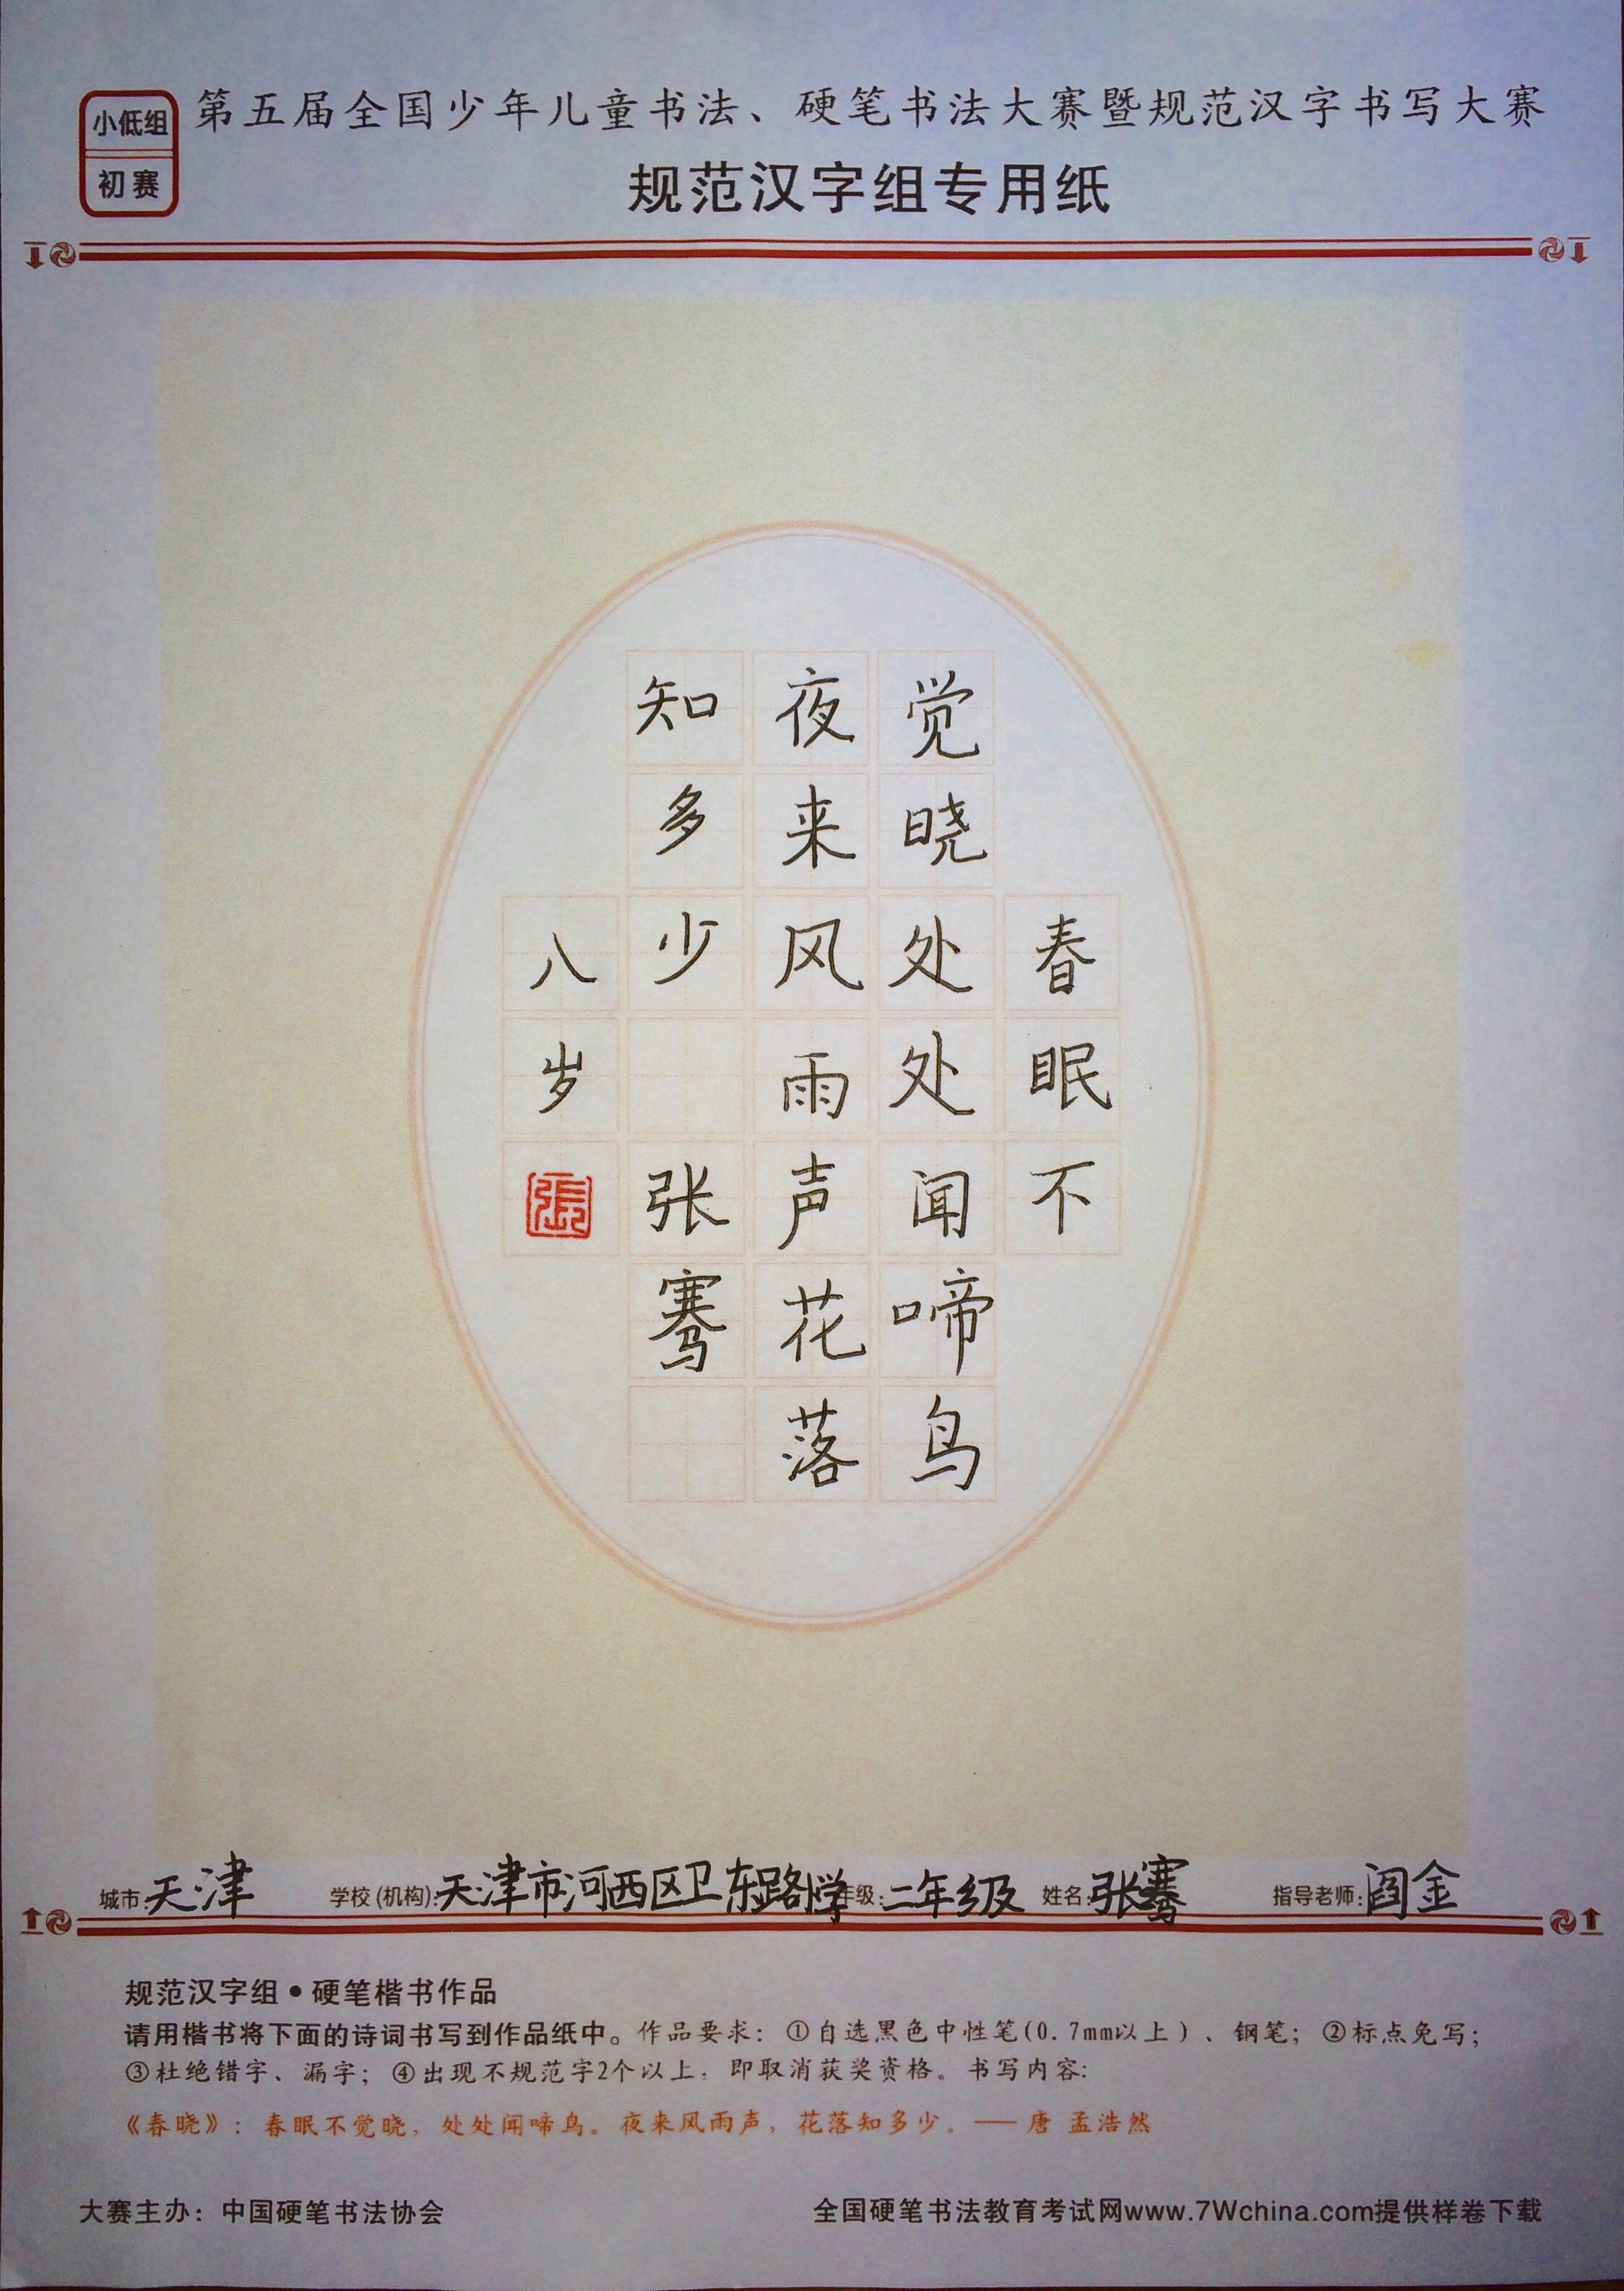 小低组
初赛
第五届全国少年儿童书法、硬笔书法大赛暨规范汉字书写大赛
规范汉字组专用纸
春眠不
觉晓处处闻啼鸟
夜来风雨声花落
知多少 张骞
八岁
張
城市:天津 学校(机构):天津市河西区卫东路小学 年级:二年级 姓名:张骞 指导老师:阎金
规范汉字组•硬笔楷书作品
请用楷书将下面的诗词书写到作品纸中。作品要求:①自选黑色中性笔(0.7mm以上)、钢笔;②标点免写;
③杜绝错字、漏字;④出现不规范字2个以上,即取消获奖资格。书写内容:
《春晓》:春眠不觉晓,处处闻啼鸟。夜来风雨声,花落知多少。——唐 孟浩然
大赛主办:中国硬笔书法协会 全国硬笔书法教育考试网www.7Wchina.com提供样卷下载